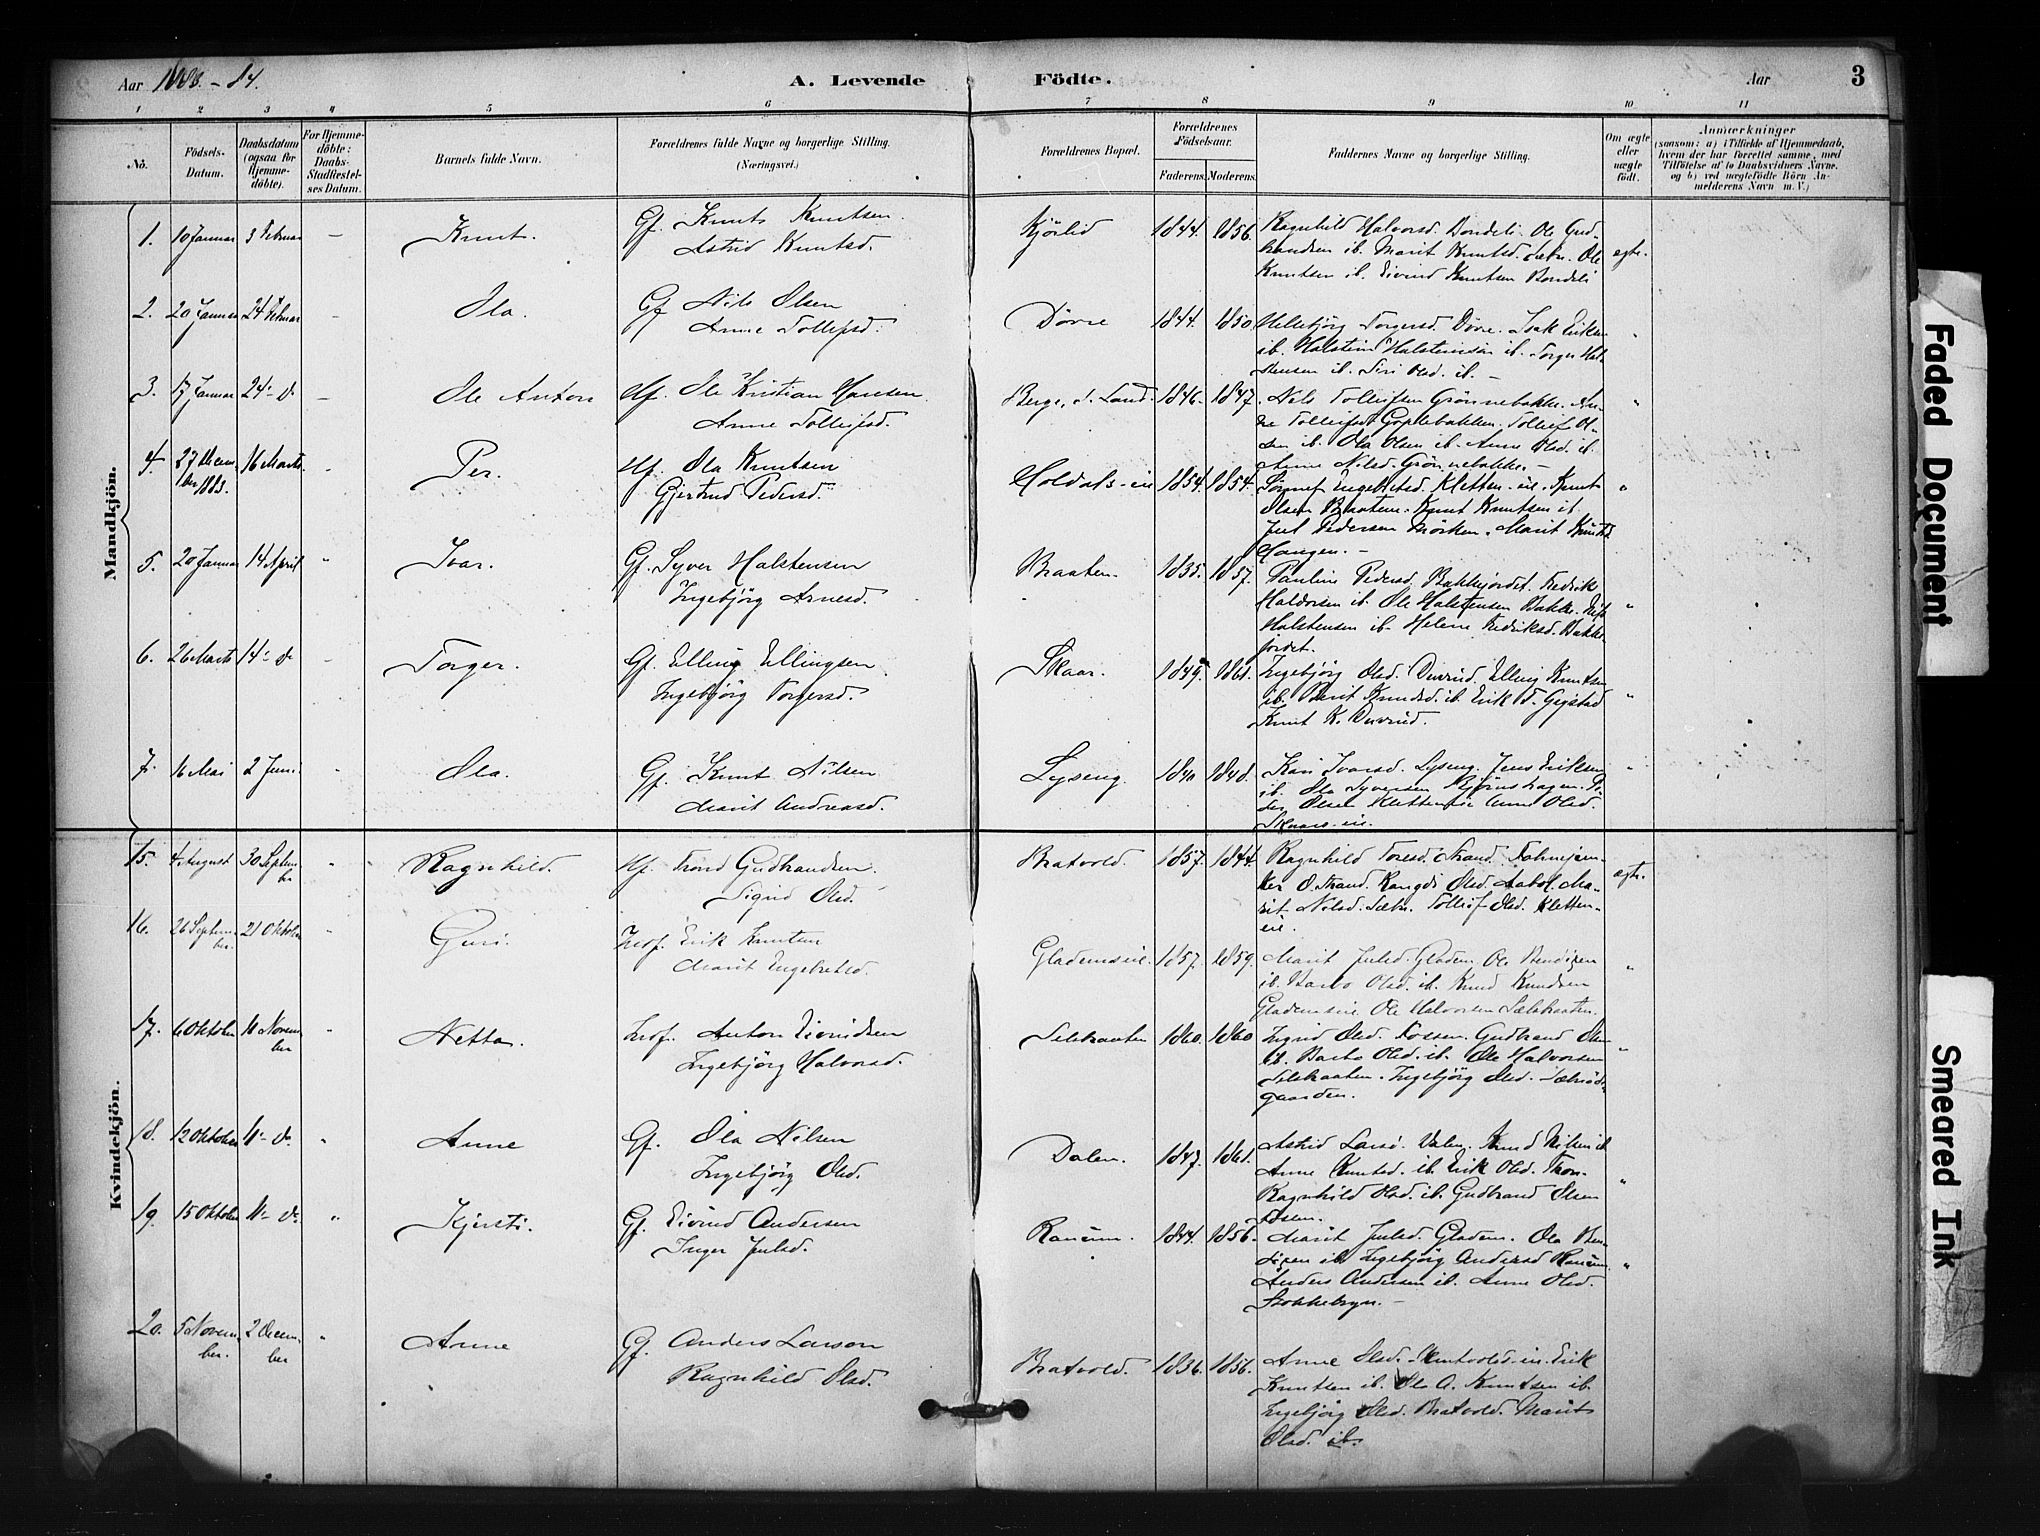 Aar 1883.-84. A. Levende Födte. Aar 3
1 2 3 4 5 6 7 8 9 10 11
No. Födsels-Datum. Daabsdatum (ogsaa for Hjemme-döbte). For Hjemme-döbte: Daabs-Stadfæstel-ses Datum. Barnets fulde Navn. Forældrenes fulde Navne og borgerlige Stilling. (Næringsvei.) Forældrenes Bopæl. Forældrenes Födselsaar. Faderens. Moderens. Faddernes Navne og borgerlige Stilling. Om ægte eller uægte födt. Anmærkninger (saasom: a) i Tilfælde af Hjemmedaab, hvem der har forrettet samme, med Tilföielse af to Daabsvidners Navne, og b) ved uægtefödte Börn An-melderens Navn m. V.)
Mandkjön.
1. 10 Januar 3 Februar - Knut. Gf. Knut Knutsen. Astrid Knutsd. Kjörlid 1844. 1856. Ragnhild Halvorsd. Bondeli. Ole Gud-
brandsen ib. Marit Knutsd. Sætr. Ole ægte.
Knutsen ib. Eivind Knutsen Bondeli
2. 20 Januar 24 Februar - Ola. Gf Nils Olsen Anne Tollefsd. Dövre 1844. 1850. Torgersd. Dövre. Isak Eriksen "
ib. Halstein Halsteinsen ib. Torger Hal-
stensen ib. Siri Olsd. ib. -
3. 17 Januar 24 - d. - Ole Anton Hf. Ole Kristian Hansen. Anne Tolleifsd. Berge, S. Land. 1846. 1847. Nils Tolleifsen Grönnebakke. An- "
ne Tolleifsd. Tolleif Ol-
sen ib. Ola Olsen ib. Anne Olsd. ib.
Anne Nilsd. Grönnebakke. -
4. 27 Decem-ber 1883. 16 Marts - Per. Hf. Ola Knutsen Gjertrud Pedersd. 1854. 1854. Engebretsd. Kletten-eie. Knut "
Olsen Braaten. Knut Knutsen ib.
Juul Pedersen Mörken. Marit Knutsd.
Haugen. -
5. 20 Januar 14 April " Ivar. Gf. Syver Halstensen Ingebjörg Arnesd. Braaten. 1835. 1857. Pauline Pedersd. Bakkejordet. Fredrik
Haldorsen ib. Ole Halstensen Bakke. "
Halstensen ib. Helene Fredriksd. Bakke-
jordet.
6. 26 Marts 14 - d. - Torger. Gf. Elling Ellingsen Ingebjörg Torgersd. Skaar. 1849. 1861. Ingebjörg Olsd. Elling Knutsen
ib. Knudsd. ib. Erik Gigstad "
Knut K.
7. 16 Mai 2 Juni - Ola. Gf. Knut Nilsen Marit Andreasd. Lyseng. 1840 1848. Kari Ivarsd. Lyseng. Jens Eriksen "
ib. Ola Syversen Björnshagen. Pe-
der Olsen Kletten eie Anne Olsd.
Skaars-eie.
Kvindekjön.
15. 4 August 30 Septem-ber " Ragnhild. Hf. Trond Gudbrandsen. Sigrid Olsd. Bratvold. 1857. 1844. Ragnhild Toresd. Strand.
O. Strand. Rangdi Olsd. Aabol. Ma- ægte.
rit Nilsd. Sætr. Tolleif Olsd. Kletten-
eie.
16. 26 Septem-ber. 21 Oktober " Guri. Inds. Erik Knutsen Marit Engebretsd. Glademseie. 1857. 1859. Marit Julsd. Gladem. Ole
ib. Olsd. ib. Knud Knudsen "
Glademseie Ole Halvorsen Sælsbraaten.
17. 6 Oktober 11 Novem-ber " Netta. Inds. Anton Eivindsen Ingebjörg Halvorsd. Selsbraaten 1860. 1860 Ingrid Olsd. Fossen. Gudbrand Olsen
ib. Olsd. ib. Ole Halvorsen "
Selsbraaten. Ingebjörg Olsd.
gaarden.
18. 12 Oktober 11 - d. " Anne Gf. Ola Nilsen Ingebjörg Olsd. Dalen. 1847. 1861. Astrid Larsd. Dalen. Knud Nilsen ib
Anne Knutsd. ib. Erik Olsd. Thon.
Ragnhild Olsd. ib. Gudbrand Olsen "
19. 15 Oktober 11 - d. " Kjersti. Gf. Eivind Andersen Inger Julsd. Ranum. 1844. 1856. Marit Julsd. Gladem. Ola
ib. Ingebjörg Andersd Ranum. "
Anders Andersen ib. Anne Olsd.
Stokkebryn. -
20. 5 Novem-ber. 2 Decem-ber " Anne Gf. Anders Larson Ragnhild Olsd. Bratvold. 1836. 1856. Anne Olsd. Erik
Knutsen ib. Ola A. Knutsen ib.
Ingebjörg Olsd. Bratvold. Marit
Olsd. ib.
Faded Document
Smeared Ink